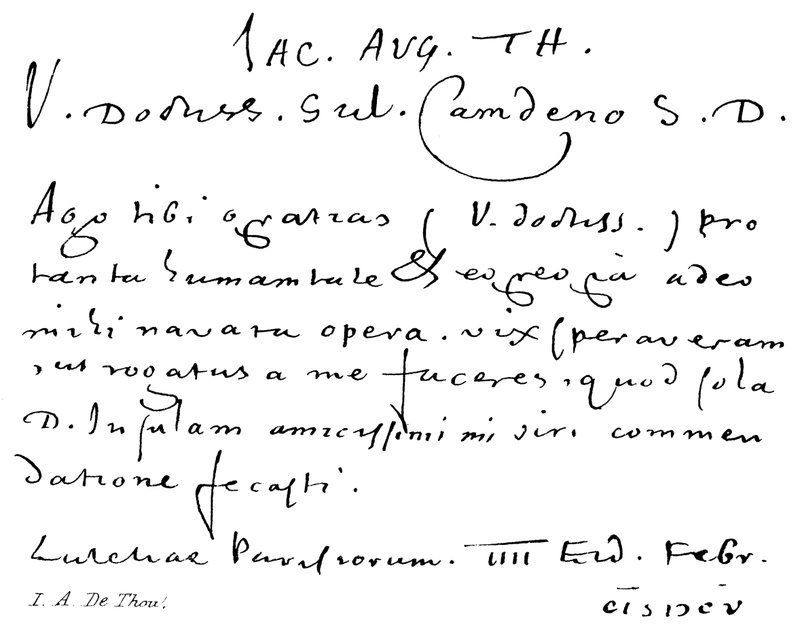 IAC. AUG. TH.
V. Doctiss. Gul. Camdeno S. D.
Ago tibi gratias ( V. doctiss. ) pro
tanta humanitate & egregiâ adeo
mihi navata opera. vix speraveram
, ut rogatus a me faceres, quod sola
D. Insulani amicissimi mi viri commen
datione fecisti.
Lutetiae Parisiorum. IIII Eid. Febr.
I. A. De Thou.